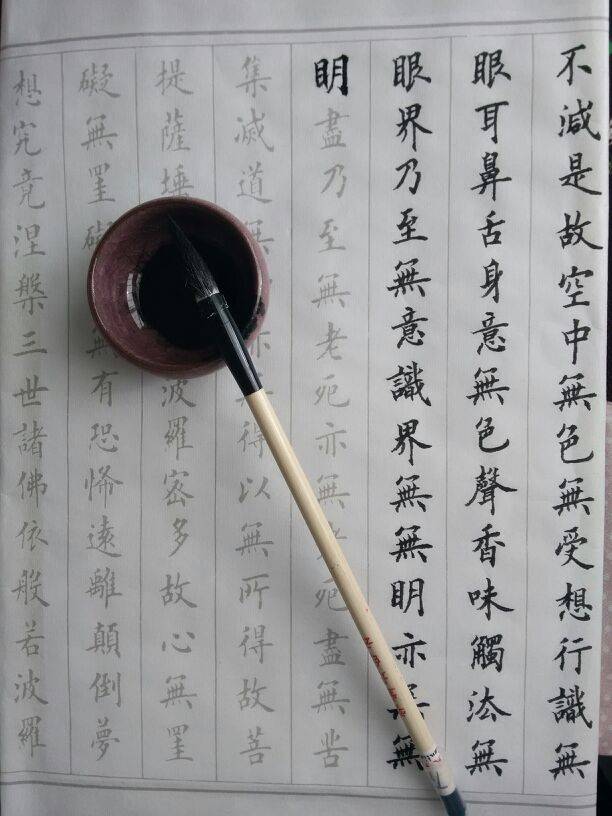 不減是故空中無色無受想行識無
眼耳鼻舌身意無色聲香味觸法無
眼界乃至無意識界無無明亦無無
明盡乃至無老死亦無老死盡無苦
集滅道無亦無得以無所得故菩
提薩埵波羅密多故心無罣
礙無罣礙無有恐怖遠離顛倒夢
想究竟涅槃三世諸佛依般若波羅